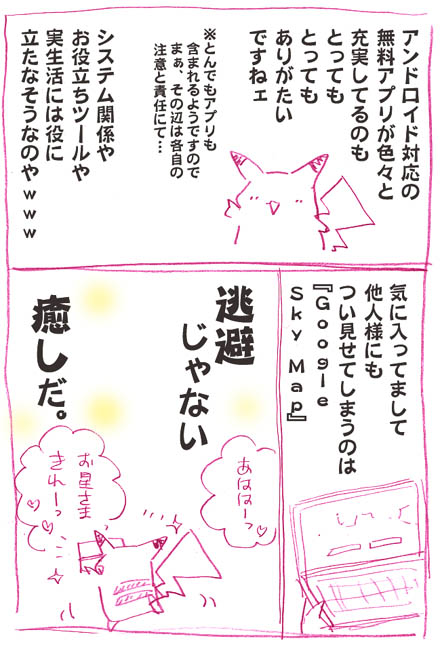 アンドロイド対応の
無料アプリが色々と
充実してるのも
とっても
とっても
ありがたい
ですねェ
※とんでもアプリも
含まれるようですので
まぁ、その辺は各自の
注意と責任にて…
システム関係や
お役立ちツールや
実生活には役に
立たなそうなのやｗｗｗ
気に入ってまして
他人様にも
つい見せてしまうのは
『Google
Sky Map』
逃避
じゃない
癒しだ。
あははーっ
お星さま
きれーっ